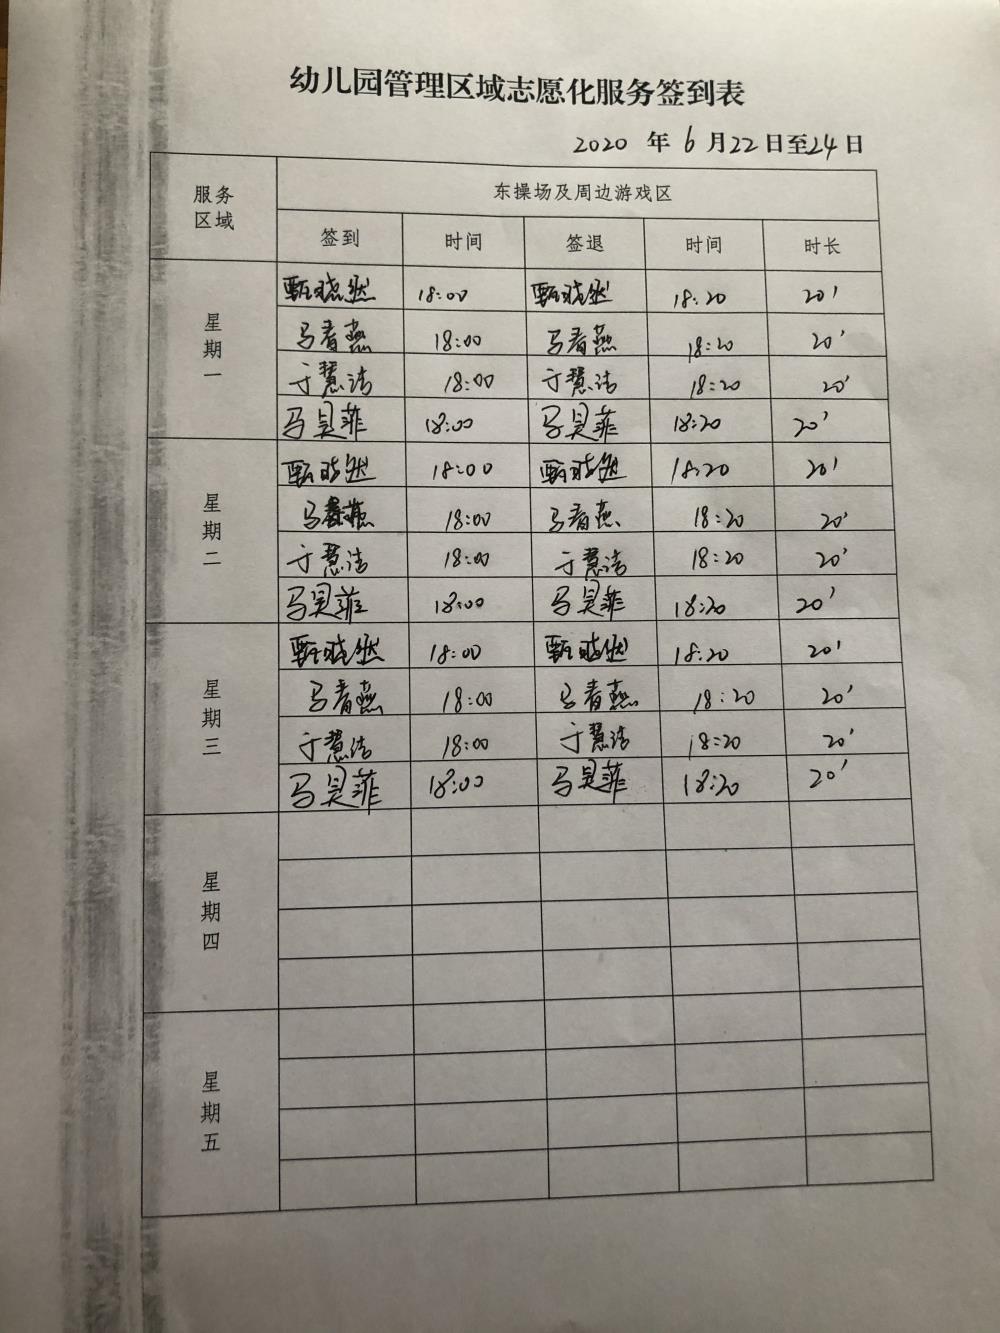 幼儿园管理区域志愿化服务签到表
2020 年 6 月 22 日至 24 日
服务区域 东操场及周边游戏区
签到 时间 签退 时间 时长
星期一
甄晓然 18:00 甄晓然 18:20 20'
马春燕 18:00 马春燕 18:20 20'
于慧洁 18:00 于慧洁 18:20 20'
马昊菲 18:00 马昊菲 18:20 20'
星期二
甄晓然 18:00 甄晓然 18:20 20'
马春燕 18:00 马春燕 18:20 20'
于慧洁 18:00 于慧洁 18:20 20'
马昊菲 18:00 马昊菲 18:20 20'
星期三
甄晓然 18:00 甄晓然 18:20 20'
马春燕 18:00 马春燕 18:20 20'
于慧洁 18:00 于慧洁 18:20 20'
马昊菲 18:00 马昊菲 18:20 20'
星期四
星期五